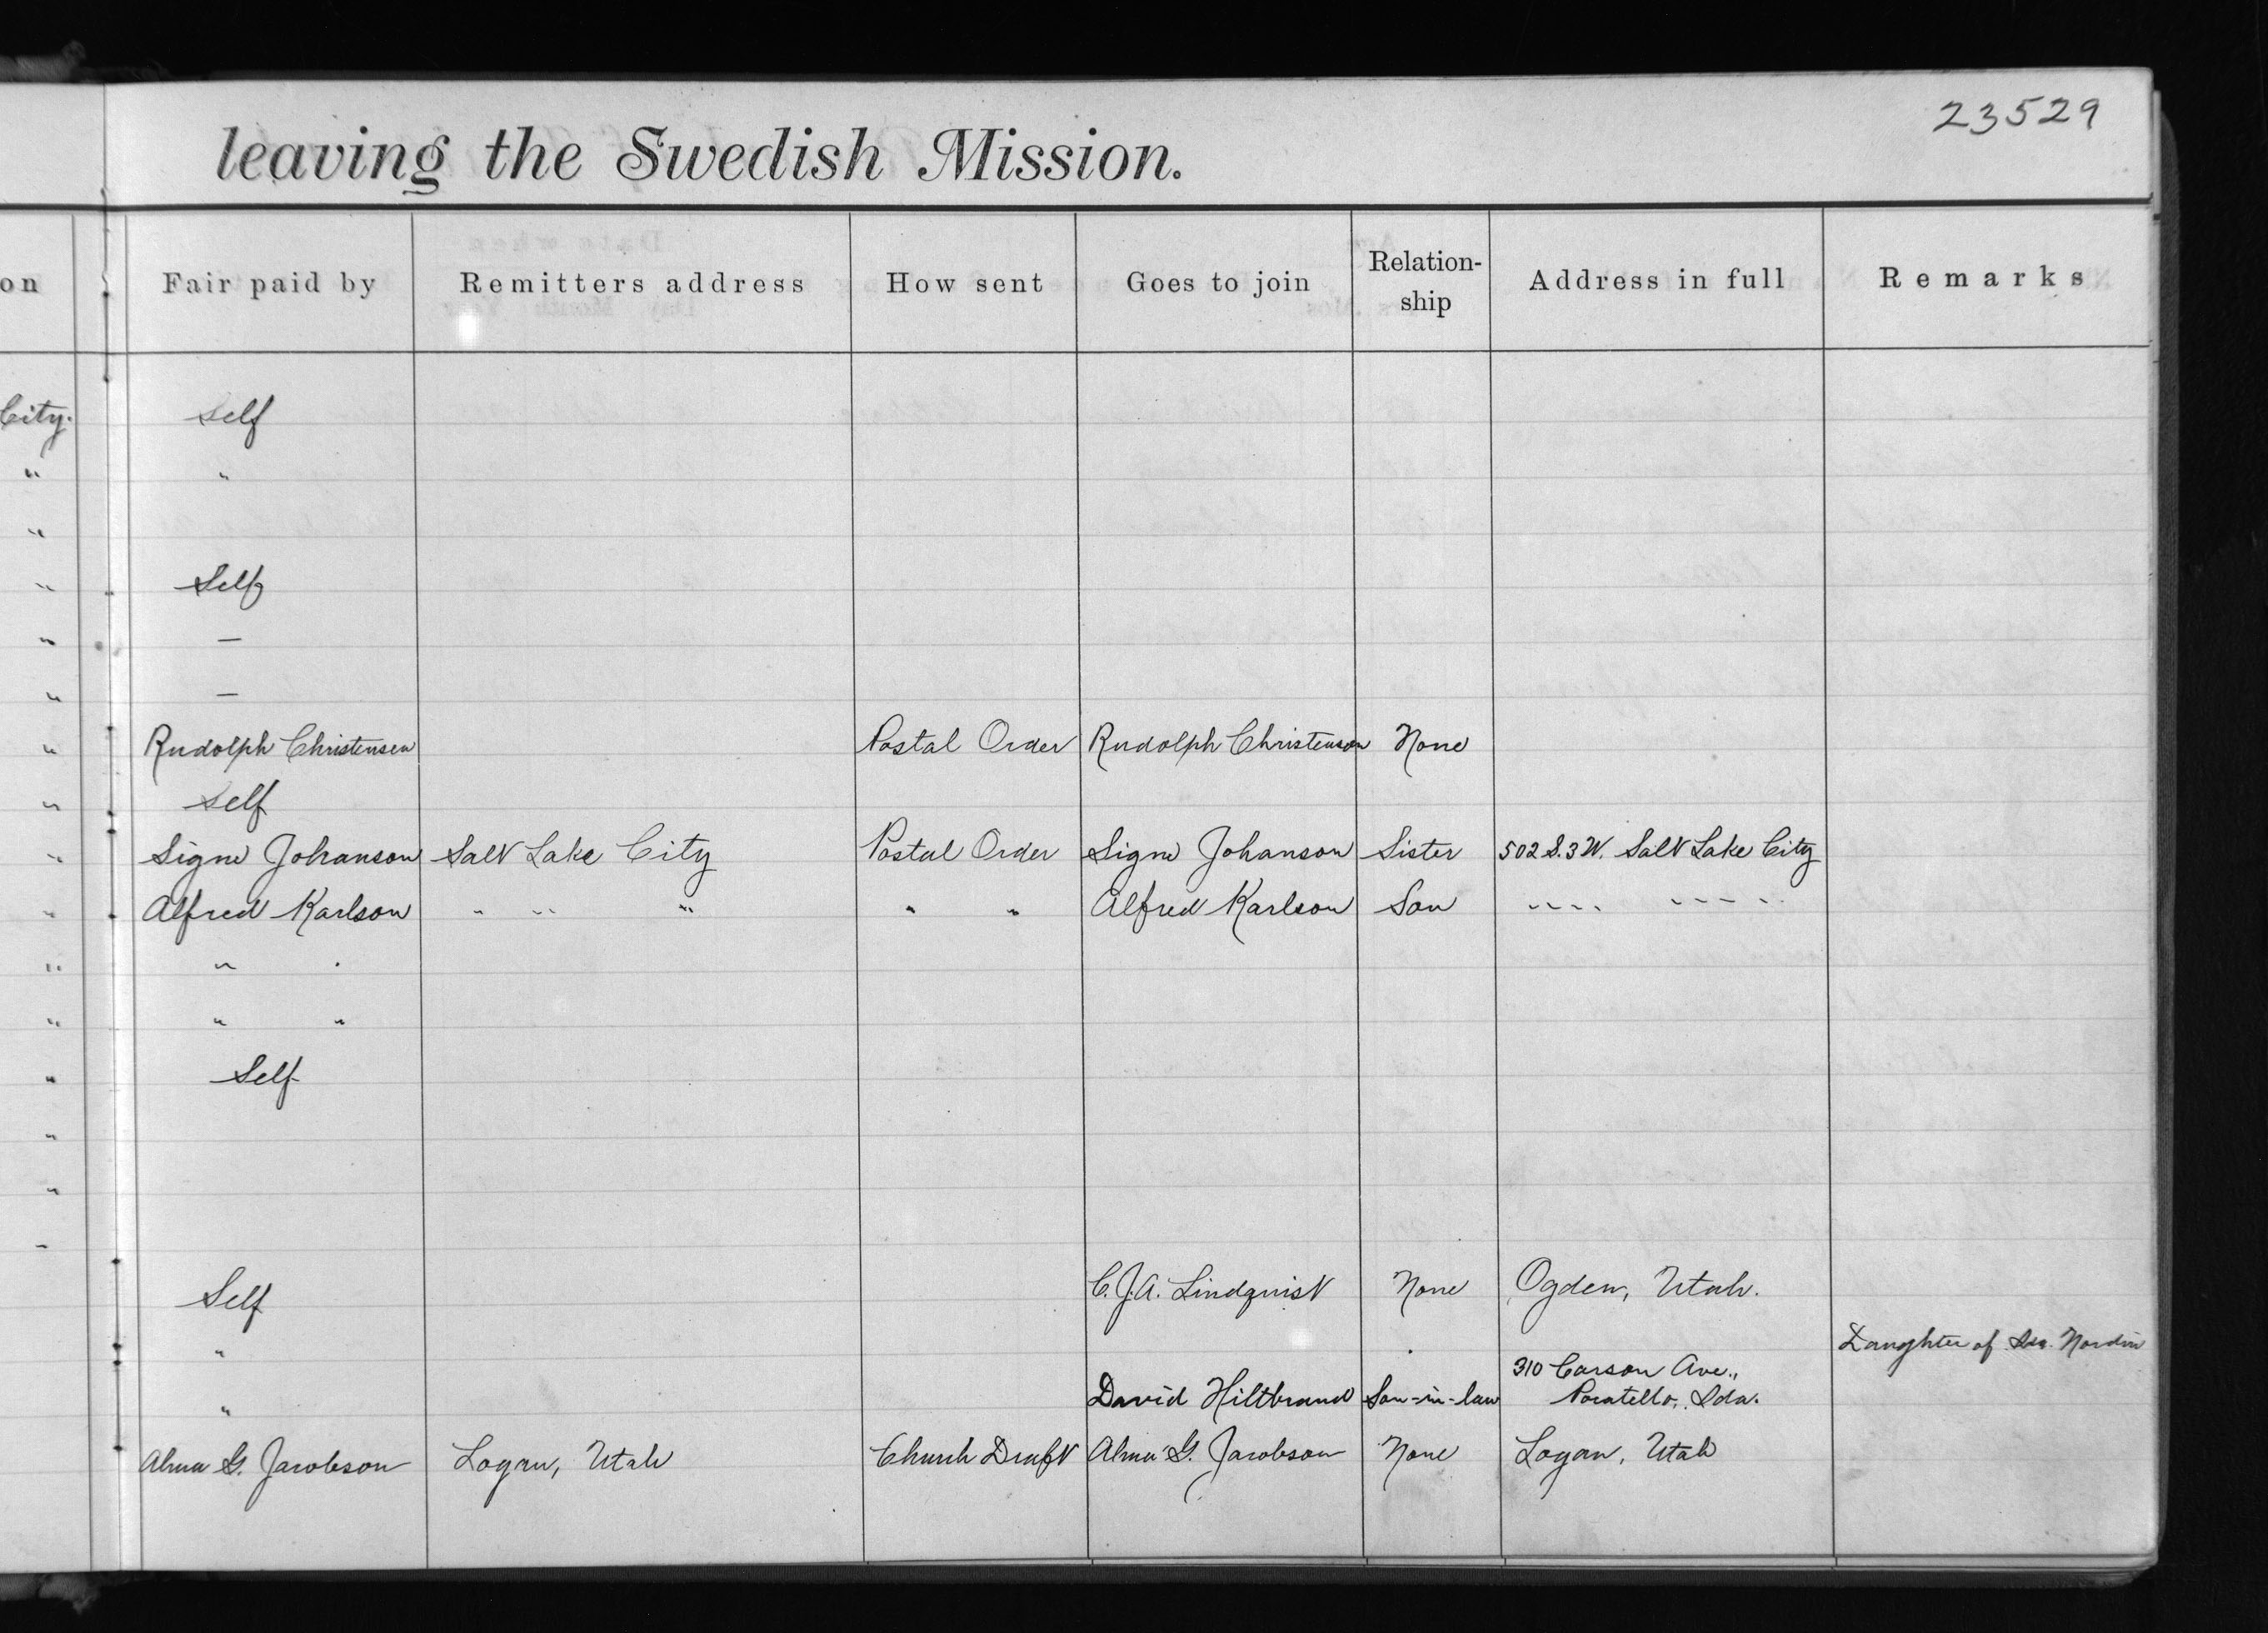 23529
leaving the Swedish Mission.
on Fair paid by Remitters address How sent Goes to join Relation-ship Address in full Remarks
City. Self
" "
"
" Self
" —
" —
" Rudolph Christensen Postal Order Rudolph Christenson None
" Self
" Signe Johanson Salt Lake City Postal Order Signe Johanson Sister 502 S. 3 W. Salt Lake City
" Alfred Karlson " " " " " Alfred Karlson Son " " " " " " " "
" " "
" " "
" Self
"
"
"
Self C. J. A. Lindquist None Ogden, Utah.
" " Daughter of Ida Nordin
" David Hiltbrand Son-in-law 310 Carson Ave.,
Pocatello, Ida.
Alma G. Jacobson Logan, Utah Church Draft Alma G. Jacobson None Logan, Utah